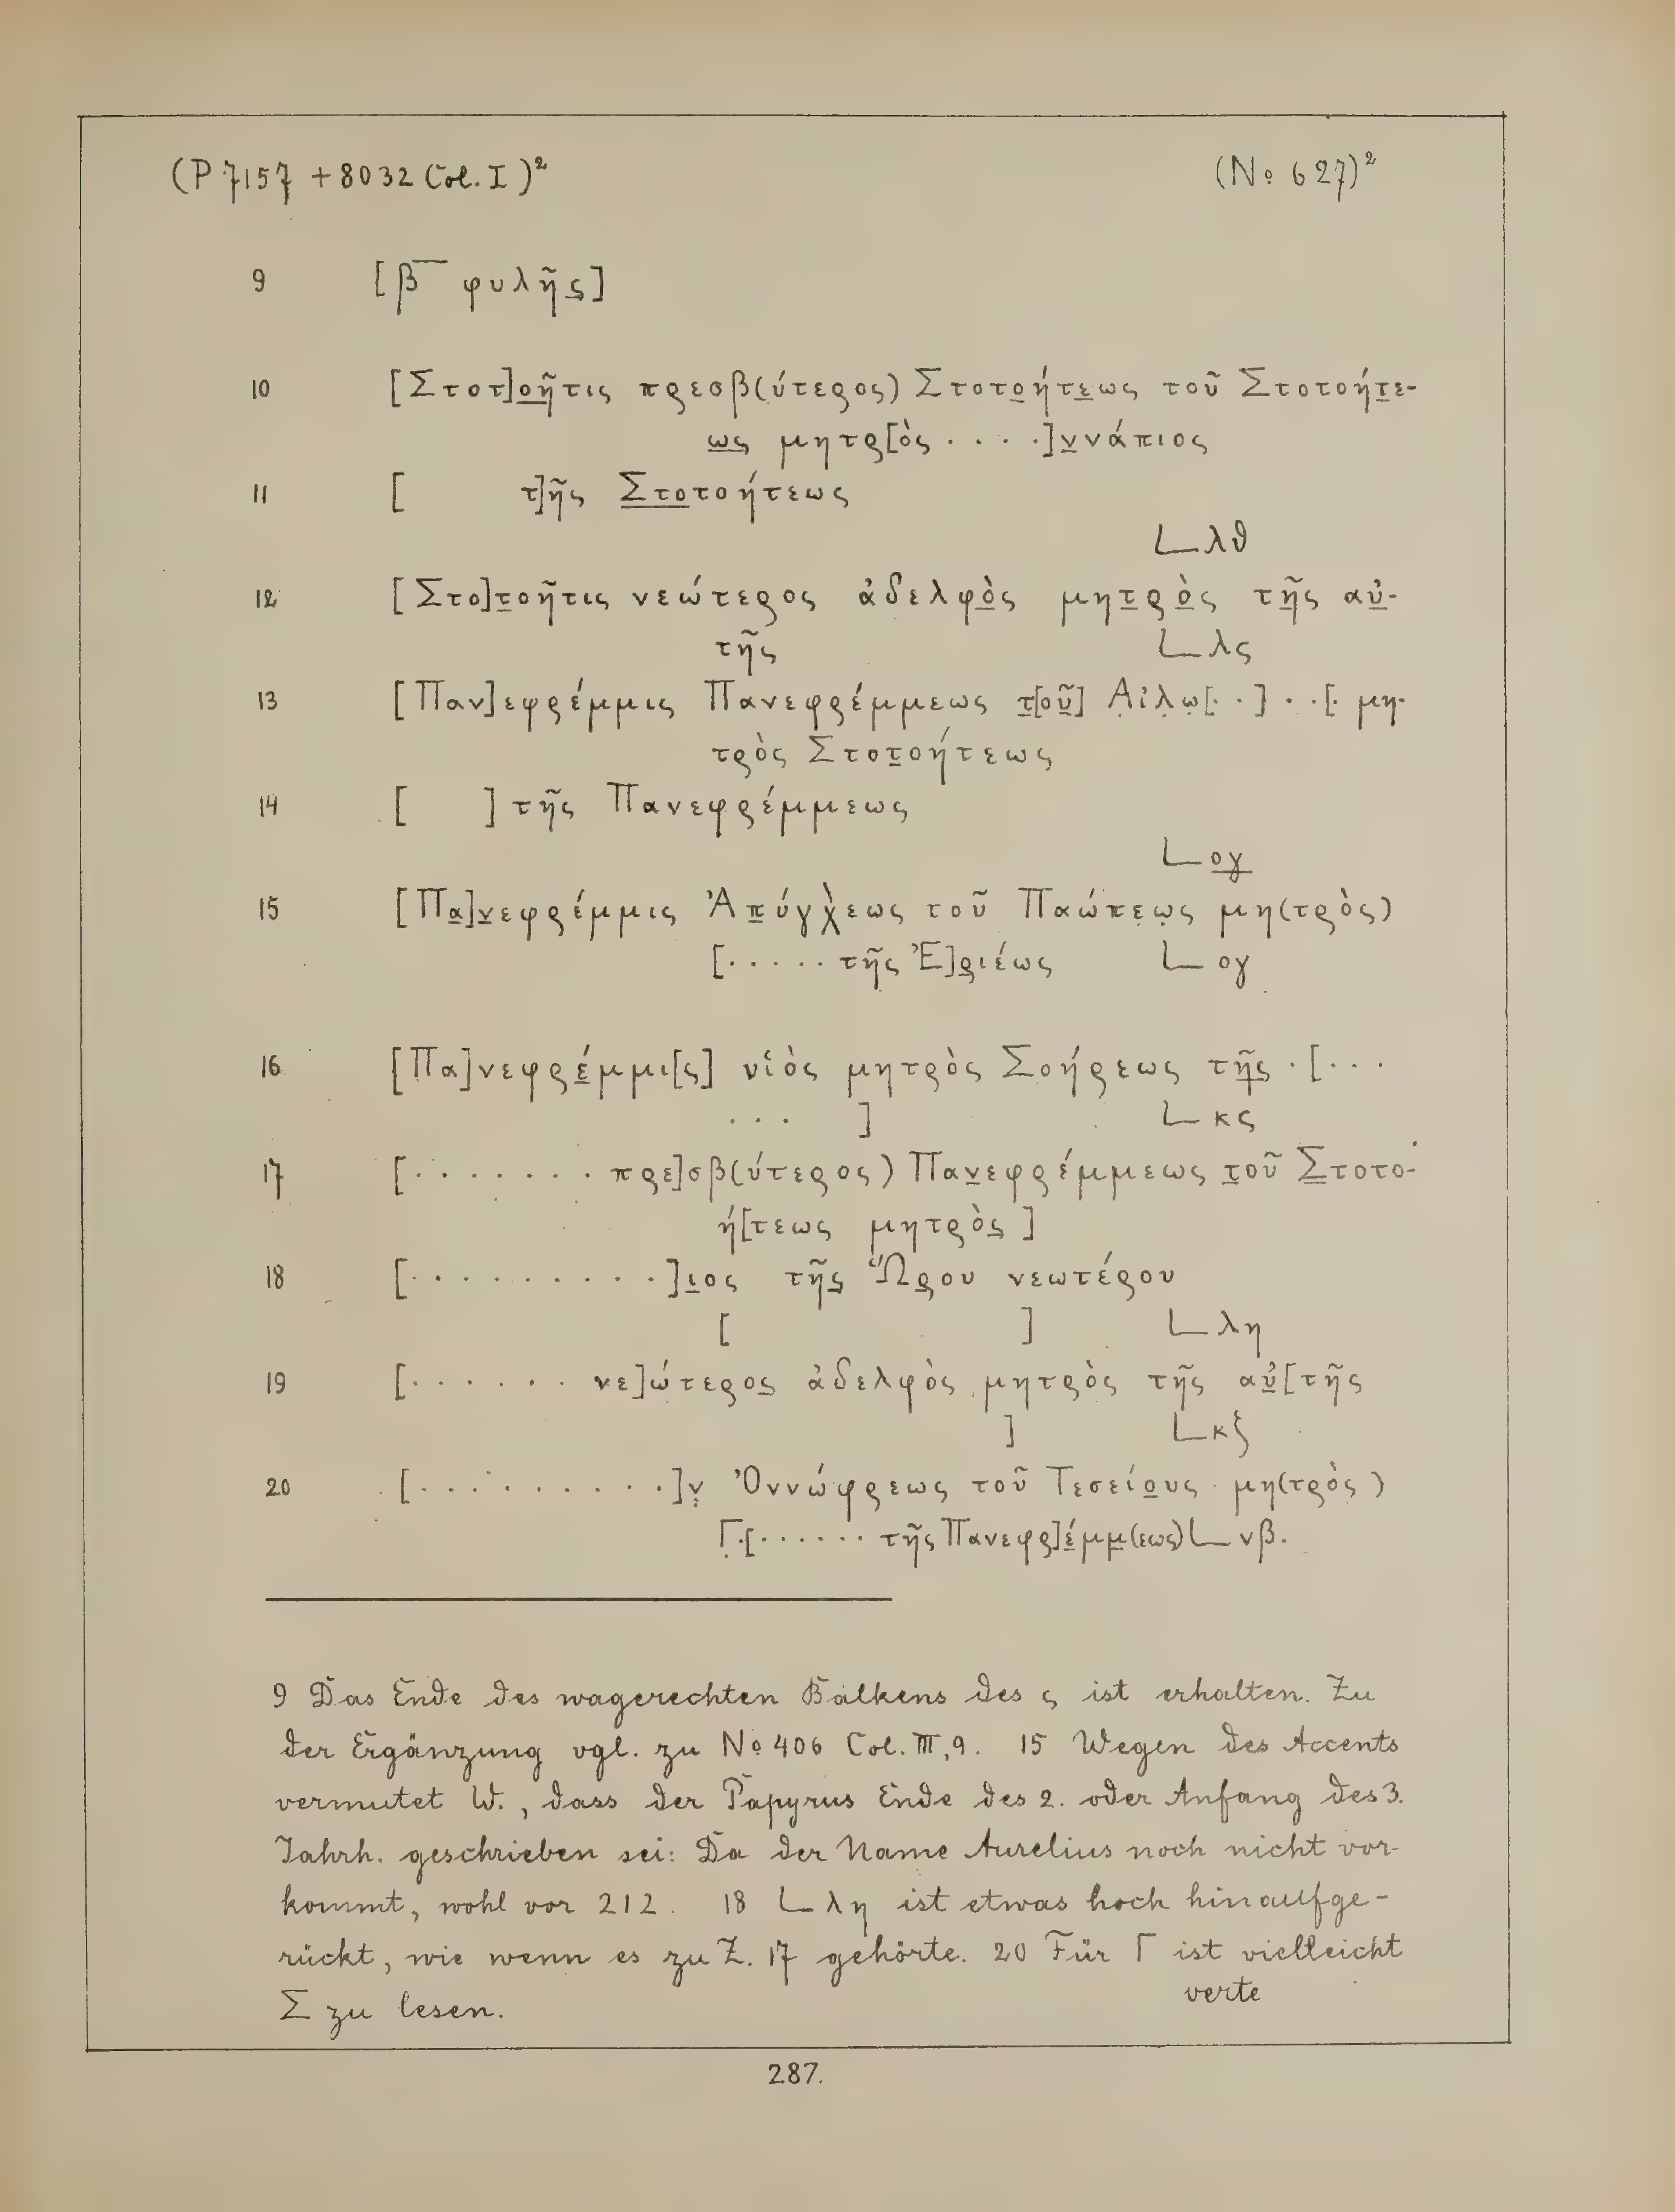 (P 7157 + 8032 Col. I)²
(No 627)²
9 [β̅ φυλῆς]
10 [Στοτ]οῆτις πρεσβ(ύτερος) Στοτοήτεως τοῦ Στοτοήτε-
ως μητρ[ὸς · · · ·]ννάπιος
11 [ τ]ῆς Στοτοήτεως
𐅹 λθ
12 [Στο]τοῆτις νεώτερος ἀδελφὸς μητρὸς τῆς αὐ-
τῆς 𐅹 λς
13 [Παν]εφρέμμις Πανεφρέμμεως τ[οῦ] Αἰλω[· ·] · · [· μη-
τρὸς Στοτοήτεως
14 [ ] τῆς Πανεφρέμμεως
𐅹 ογ
15 [Πα]νεφρέμμις Ἀπύγχ̀εως τοῦ Παώπεως μη(τρὸς)
[· · · · · τῆς Ἐ]ριέως 𐅹 ογ
16 [Πα]νεφρέμμι[ς] υἱὸς μητρὸς Σοήρεως τῆς · [· · ·
· · · ] 𐅹 κς
17 [· · · · · · · πρε]σβ(ύτερος) Πανεφρέμμεως τοῦ Στοτο-
ή[τεως μητρὸς]
18 [· · · · · · · · ·]ιος τῆς Ὥρου νεωτέρου
[ ] 𐅹 λη
19 [· · · · · · νε]ώτερος ἀδελφὸς μητρὸς τῆς αὐ[τῆς
] 𐅹 κζ
20 [· · · · · · · · ·]ν Ὀννώφρεως τοῦ Τεσείους μη(τρὸς)
Γ·[· · · · · · τῆς Πανεφρ]έμμ(εως) 𐅹 νβ.
9 Das Ende des wagerechten Balkens des ς ist erhalten. Zu
der Ergänzung vgl. zu No 406 Col. III, 9. 15 Wegen des Accents
vermutet W., dass der Papyrus Ende des 2. oder Anfang des 3.
Jahrh. geschrieben sei: Da der Name Aurelius noch nicht vor-
kommt, wohl vor 212. 18 𐅹 λη ist etwas hoch hinaufge-
rückt, wie wenn es zu Z. 17 gehörte. 20 Für Γ ist vielleicht
Σ zu lesen.
verte
287.